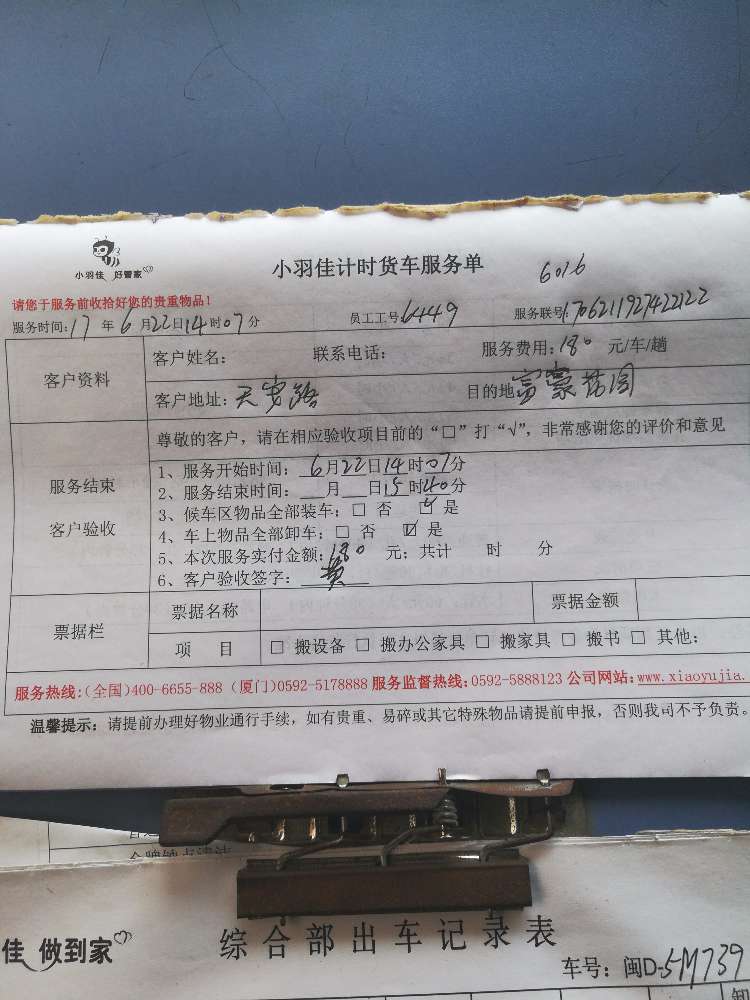 小羽佳 好管家
小羽佳计时货车服务单
6016
请您于服务前收拾好您的贵重物品！
服务时间：17 年 6 月22日14时07分 员工工号：6449 服务联号：1706211927422122
客户资料
客户姓名： 联系电话： 服务费用：180 元/车/趟
客户地址：天安路 目的地 富豪花园
尊敬的客户，请在相应验收项目前的“□”打“√”，非常感谢您的评价和意见
服务结束
客户验收
1、服务开始时间：6月22日14时07分
2、服务结束时间：___月___日15时40分
3、候车区物品全部装车：□ 否 ☑ 是
4、车上物品全部卸车：□ 否 ☑ 是
5、本次服务实付金额：180 元；共计 时 分
6、客户验收签字：黄
票据栏
票据名称 票据金额
项 目 □ 搬设备 □ 搬办公家具 □ 搬家具 □ 搬书 □ 其他：
服务热线：(全国)400-6655-888 (厦门)0592-5178888 服务监督热线：0592-5888123 公司网站：www.xiaoyujia.
温馨提示：请提前办理好物业通行手续，如有贵重、易碎或其它特殊物品请提前申报，否则我司不予负责。
佳 做到家
综合部出车记录表
车号：闽D-5M739